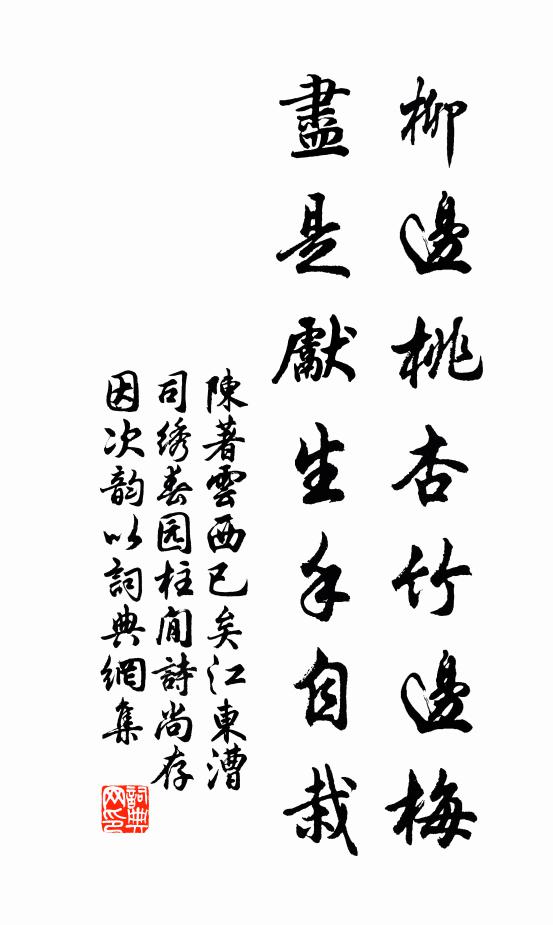 柳邊桃杏竹邊梅
盡是獻生手自栽
陳著雲西已矣江東漕
司绣春园柱间詩尚存
因次韵以詞典網集
詞典
网印